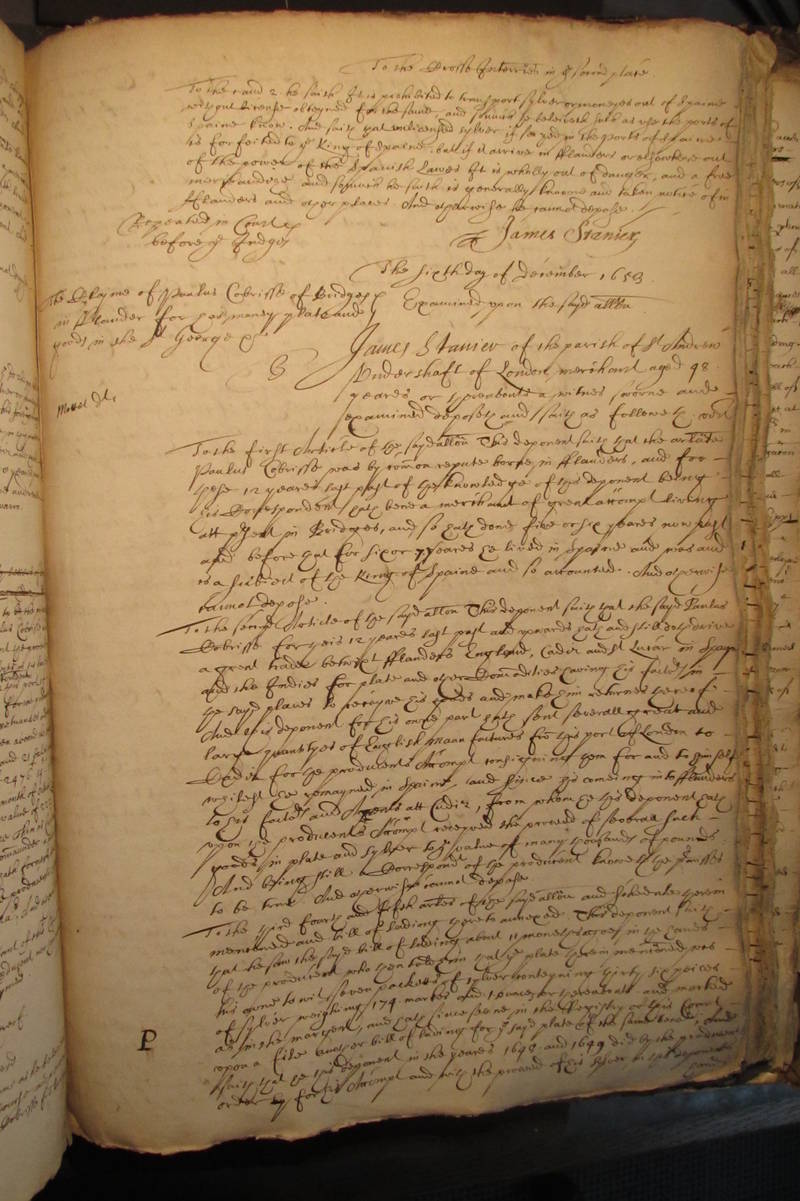 To the Crosse Interries in ye second place
To the 1 and 2 he saith It is prohibited to transport sylver or moneyes out of Spaine
without license obteyned for the same, and soe much he beleiveth such as use the ports of
Spaine know. And saith that unlicensed sylver if seized in the ports of Spaine
is forfeited to ye King of Spaine, but if it arrive in Flanders or elsewhere out
of the power of the Spanish Lawes it is wholly out of danger, and a free
merchandize and soe much he saith is generally knowne and taken notice of in
Flanders and other places. And otherwise he cannot depose.
Repeated in Court
before ye Judges
James Stanier
The sixth day of December 1653
The Clayme of Paulus Cobrisse of Bridges
in Flanders for his money plate and
goods in the St George
Examined upon the sayd allon
James Stanier of the parish of St Andrew
Undershaft of London merchant aged 48
yeares or thereabouts a witnes sworne and
examined deposeth and saith as followeth vizt
To the first Article of the sayd allon This deponent saith that the arlate
Paulus Cobrisse was by common repute borne in Flanders, and for
these 12 yeares last past of the knowledge of this deponent being
his Correspondent hath bene a merchant of great accompt living
att present in Bridges, and so hath done five or six yeares now last
and before that for six or 7 yeares he lived in Spaine and was and
is a subiect of the King of Spaine and so accounted. And otherwise
cannot depose.
To the second Article of the sayd allon This deponent saith that the sayd Paulus
Cobrisse for theis 12 yeares last past and upwards hath and still doth drive
a great trade betwixt Flanders England, Cadiz and St Lucar in Spaine
and the Indies for plate and other Commodities having his factors in
the sayd places to receyve his goods and make him returnes thereof.
And this deponent for his owne part hath sent severall great and
large quantityes of English Manufactures from this port of London to
Cadiz for the producents Accompt consigning them for and to himself
whilest he remayned in Spaine, and since his comeing into Flanders
to his factors and Agents att Cadiz, from whom he this deponent hath
upon the producents Accompt received the proceed of severall such
goods in plate and sylver to ye value of many thousands of pounds.
And being still Correspondt of the producent knoweth the premisses
to be true. And otherwise cannot depose
To the third fourth and fifth arles of the sayd allon and schedule therein
mentioned and bill of lading thereto annexed. This deponent saith
that he saw the sayd bill of lading about 11 moneths agoe in the hands
of the producent who then told him that ye plate therein mentioned was
his owne to wit seven packets of sylver conteyning thirty six peices
of sylver weighing 174 markes and 1 ounce or thereabouts and marked
as in the margent, and hath since seene in the Registry of this Court
upon a file another bill of lading for ye sayd plate of the same tenor, And
saith that he this deponent in the yeares 1648 and 1649 did by the producents
order for his Accompt and with the proceed of his sylver
P